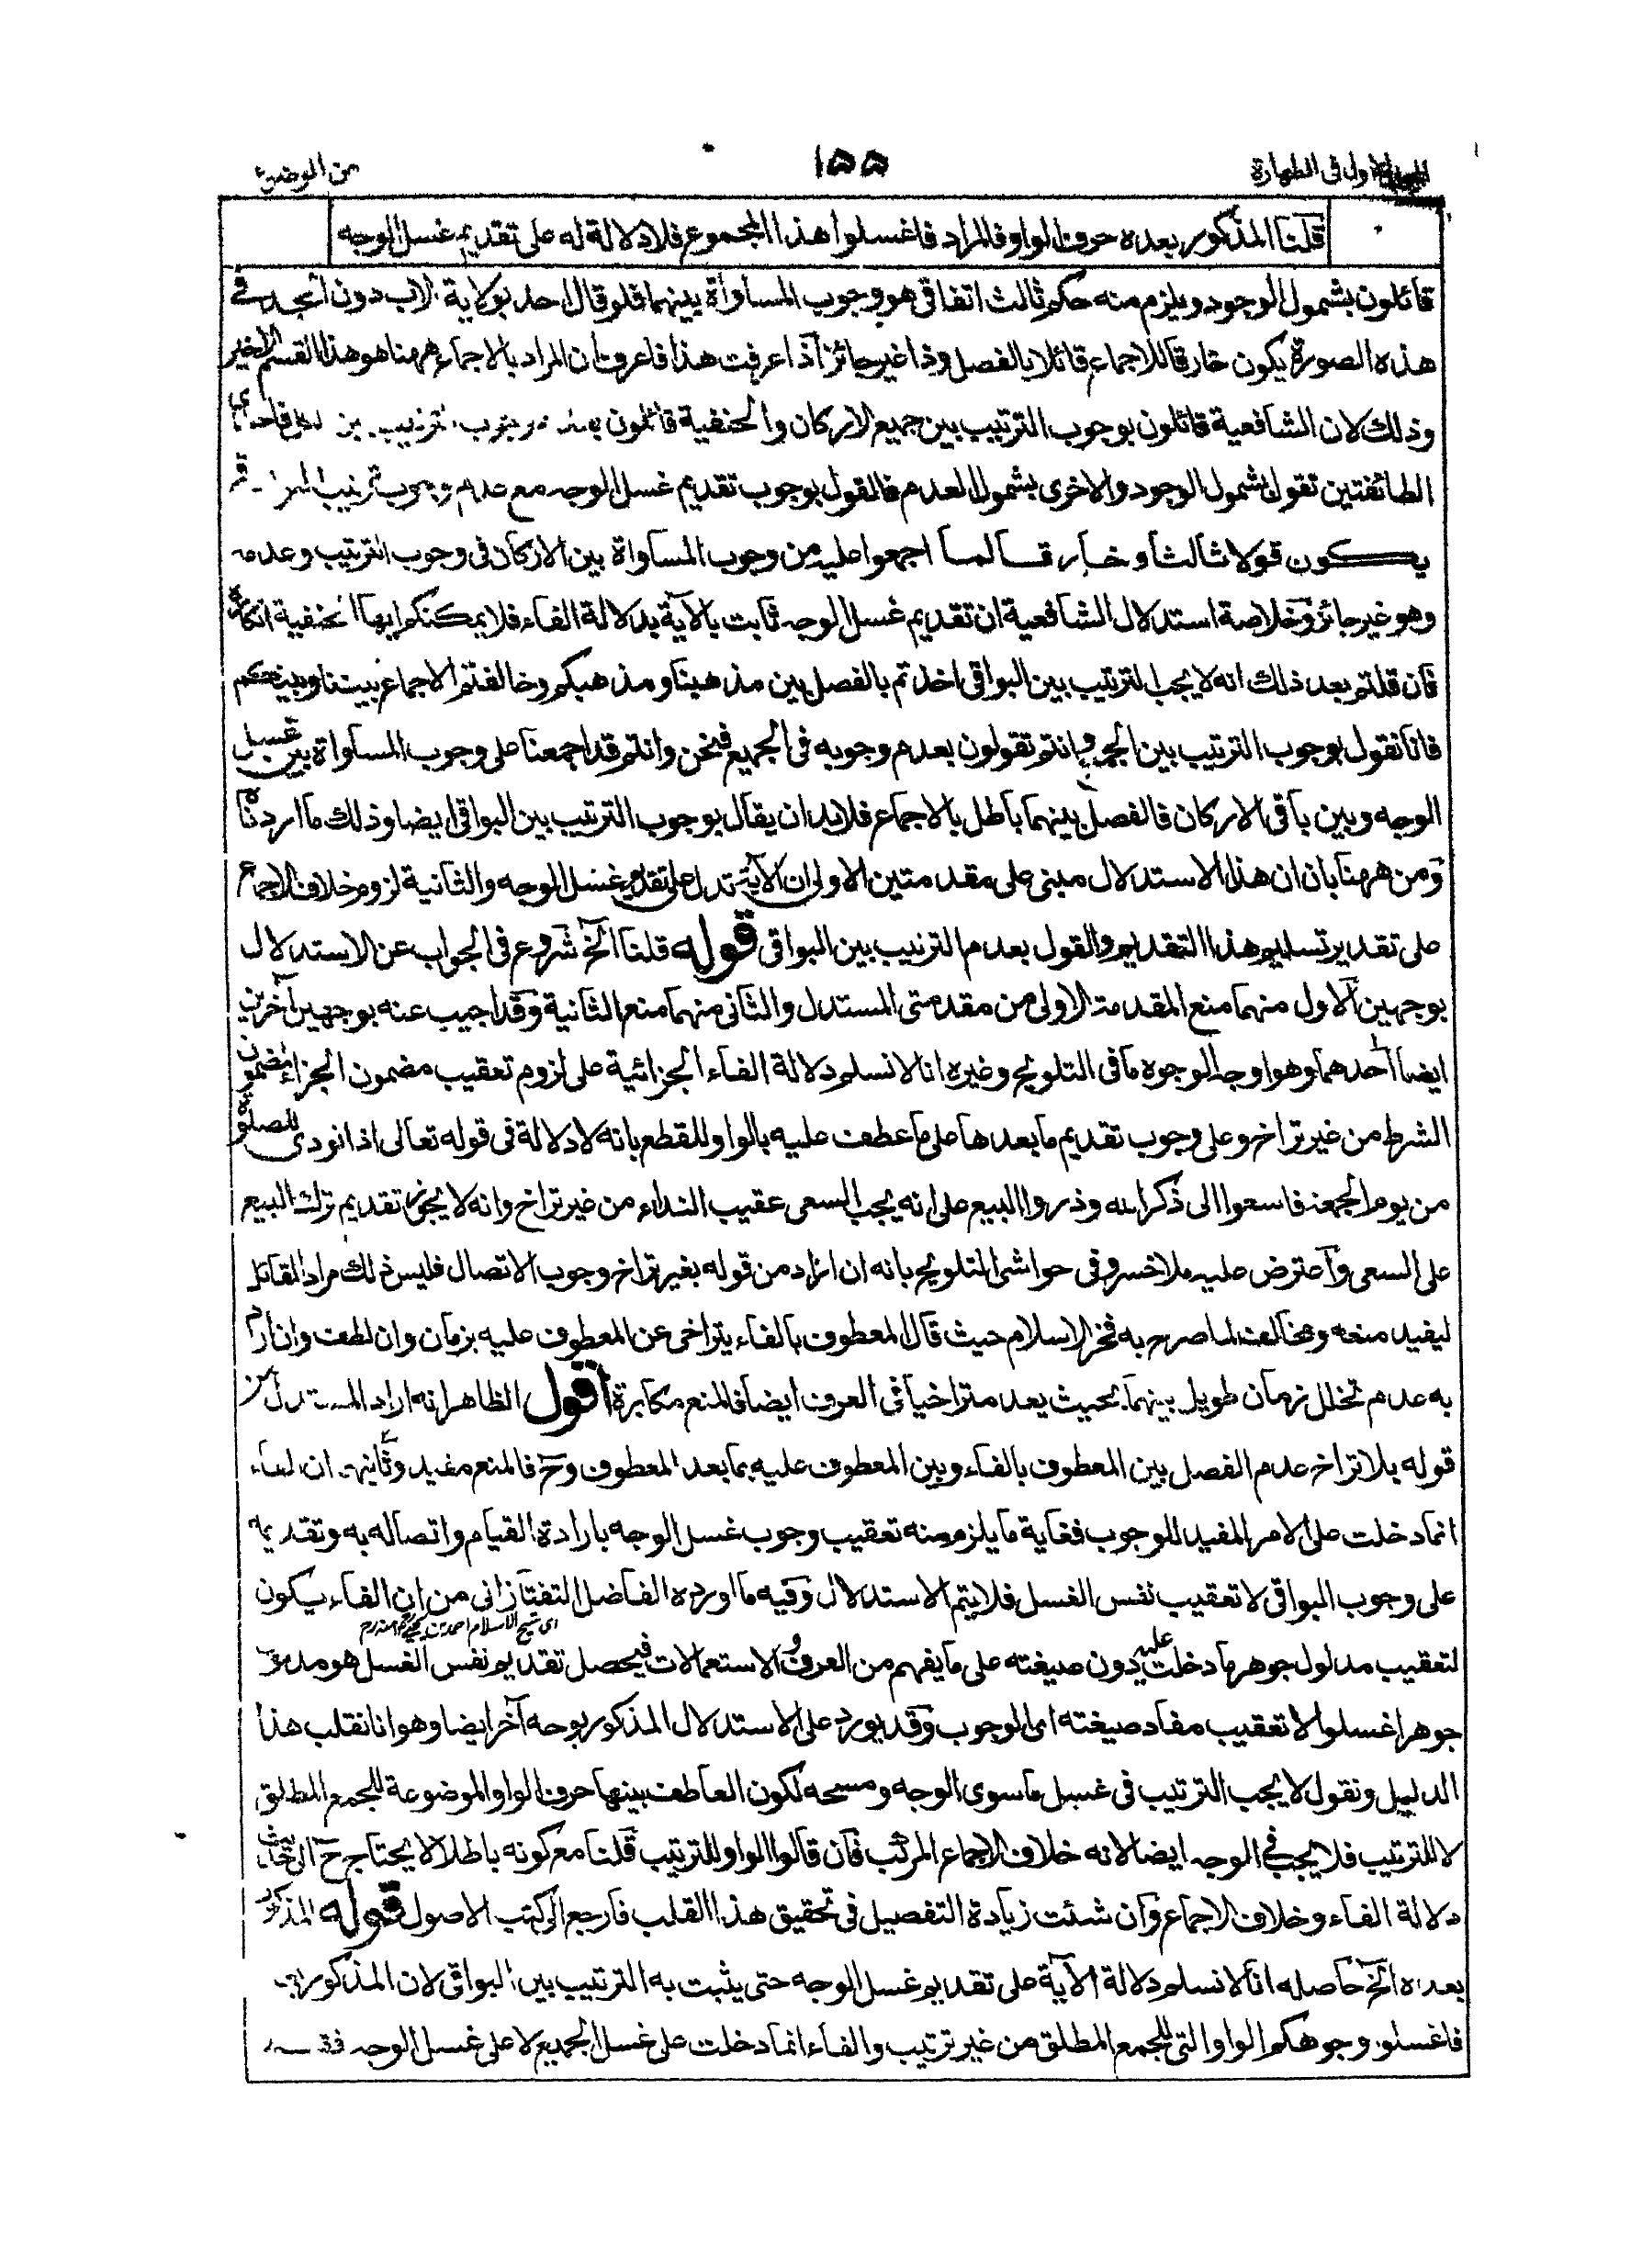 الاول فى الطهارة
١٥٥
من الوضوء
قلنا المذكور بعده حرف الواو فالمراد فاغسلوا هذا المجموع فلا دلالة له على تقديم غسل الوجه
قائلون بشمول الوجود ويلزم منه حكم ثالث اتفاقى هو وجوب المساواة بينهما فلو قال احد بولاية الاب دون الجد فى
هذه الصورة يكون خارقا للاجماع قائلا بالفصل وذا غير جائز اذا عرفت هذا فاعرف ان المراد بالاجماع ههنا هو هذا القسم الاخير
وذلك لان الشافعية قائلون بوجوب الترتيب بين جميع الاركان والحنفية قائلون بعدم وجوب الترتيب بين الكل فاحدى
الطائفتين تقول بشمول الوجود والاخرى بشمول العدم فالقول بوجوب تقديم غسل الوجه مع عدم وجوب ترتيب
يكون قولا ثالثا وخارقا لما اجمعوا عليه من وجوب المساواة بين الاركان فى وجوب الترتيب وعدمه
وهو غير جائز وخلاصة استدلال الشافعية ان تقديم غسل الوجه ثابت بالآية بدلالة الفاء فلا يمكنكم ايها الحنفية انكاره
فان قلتم بعد ذلك انه لا يجب الترتيب بين البواقى اخذتم بالفصل بين مذهبنا ومذهبكم وخالفتم الاجماع بيننا وبينكم
فانا نقول بوجوب الترتيب بين الجميع وانتم تقولون بعدم وجوبه فى الجميع فنحن وانتم قد اجمعنا على وجوب المساواة بين غسل
الوجه وبين باقى الاركان فالفصل بينهما باطل بالاجماع فلا بد ان يقال بوجوب الترتيب بين البواقى ايضا وذلك ما اردناه
ومن ههنا بان ان هذا الاستدلال مبنى على مقدمتين الاولى ان الآية تدل على تقديم غسل الوجه والثانية لزوم خلاف الاجماع
على تقدير تسليم هذا التقديم والقول بعدم الترتيب بين البواقى قوله قلنا الخ شروع فى الجواب عن الاستدلال
بوجهين الاول منهما منع المقدمة الاولى من مقدمتى المستدل والثانى منهما منع الثانية وقد اجيب عنه بوجهين آخرين
ايضا احدهما وهو اوجه الوجوه ما فى التلويح وغيره انا لا نسلم دلالة الفاء الجزائية على لزوم تعقيب مضمون الجزاء لمضمون
الشرط من غير تراخ وعلى وجوب تقديم ما بعدها على ما عطف عليه بالواو للقطع بانه لا دلالة فى قوله تعالى اذا نودى للصلوة
من يوم الجمعة فاسعوا الى ذكر الله وذروا البيع على انه يجب السعى عقيب النداء من غير تراخ وانه لا يجوز تقديم ترك البيع
على السعى واعترض عليه ملا خسرو فى حواشى التلويح بانه ان اراد من قوله بغير تراخ وجوب الاتصال فليس ذلك مراد القائل
ليفيد منعه ومخالف لما صرح به فخر الاسلام حيث قال المعطوف بالفاء يتراخى عن المعطوف عليه بزمان وان لطف وان اراد
به عدم تخلل زمان طويل بينهما بحيث يعد متراخيا فى العرف ايضا فالمنع مكابرة اقول الظاهر انه اراد المستدل من
قوله بلا تراخ عدم الفصل بين المعطوف بالفاء وبين المعطوف عليه بما بعد المعطوف وح فالمنع مفيد وثانيهما ان الفاء
انما دخلت على الامر المفيد للوجوب فغاية ما يلزم منه تعقيب وجوب غسل الوجه بارادة القيام واتصاله به وتقديمه
على وجوب البواقى لا تعقيب نفس الغسل فلا يتم الاستدلال وفيه ما اورده الفاضل التفتازانى من ان الفاء يكون
اى شيخ الاسلام احمد بن يحيى
لتعقيب مدلول جوهر ما دخلت عليه دون صيغته على ما يفهم من العرف والاستعمالات فيحصل تقديم نفس الغسل هو مدلول
جوهر اغسلوا لا تعقيب مفاد صيغته اى الوجوب وقد يورد على الاستدلال المذكور بوجه آخر ايضا وهو انا نقلب هذا
الدليل ونقول لا يجب الترتيب فى غسل ما سوى الوجه ومسحه لكون العاطف بينها حرف الواو الموضوعة للجمع المطلق
لا للترتيب فلا يجب فى الوجه ايضا لانه خلاف الاجماع المركب فان قالوا الواو للترتيب قلنا مع كونه باطلا لا يحتاج ح الى
دلالة الفاء وخلاف الاجماع وان شئت زيادة التفصيل فى تحقيق هذا القلب فارجع الى كتب الاصول قوله المذكور
بعده الخ حاصله انا لا نسلم دلالة الآية على تقديم غسل الوجه حتى يثبت به الترتيب بين البواقى لان المذكور
فاغسلوا وجوهكم الواو التى للجمع المطلق من غير ترتيب والفاء انما دخلت على غسل الجميع لا على غسل الوجه